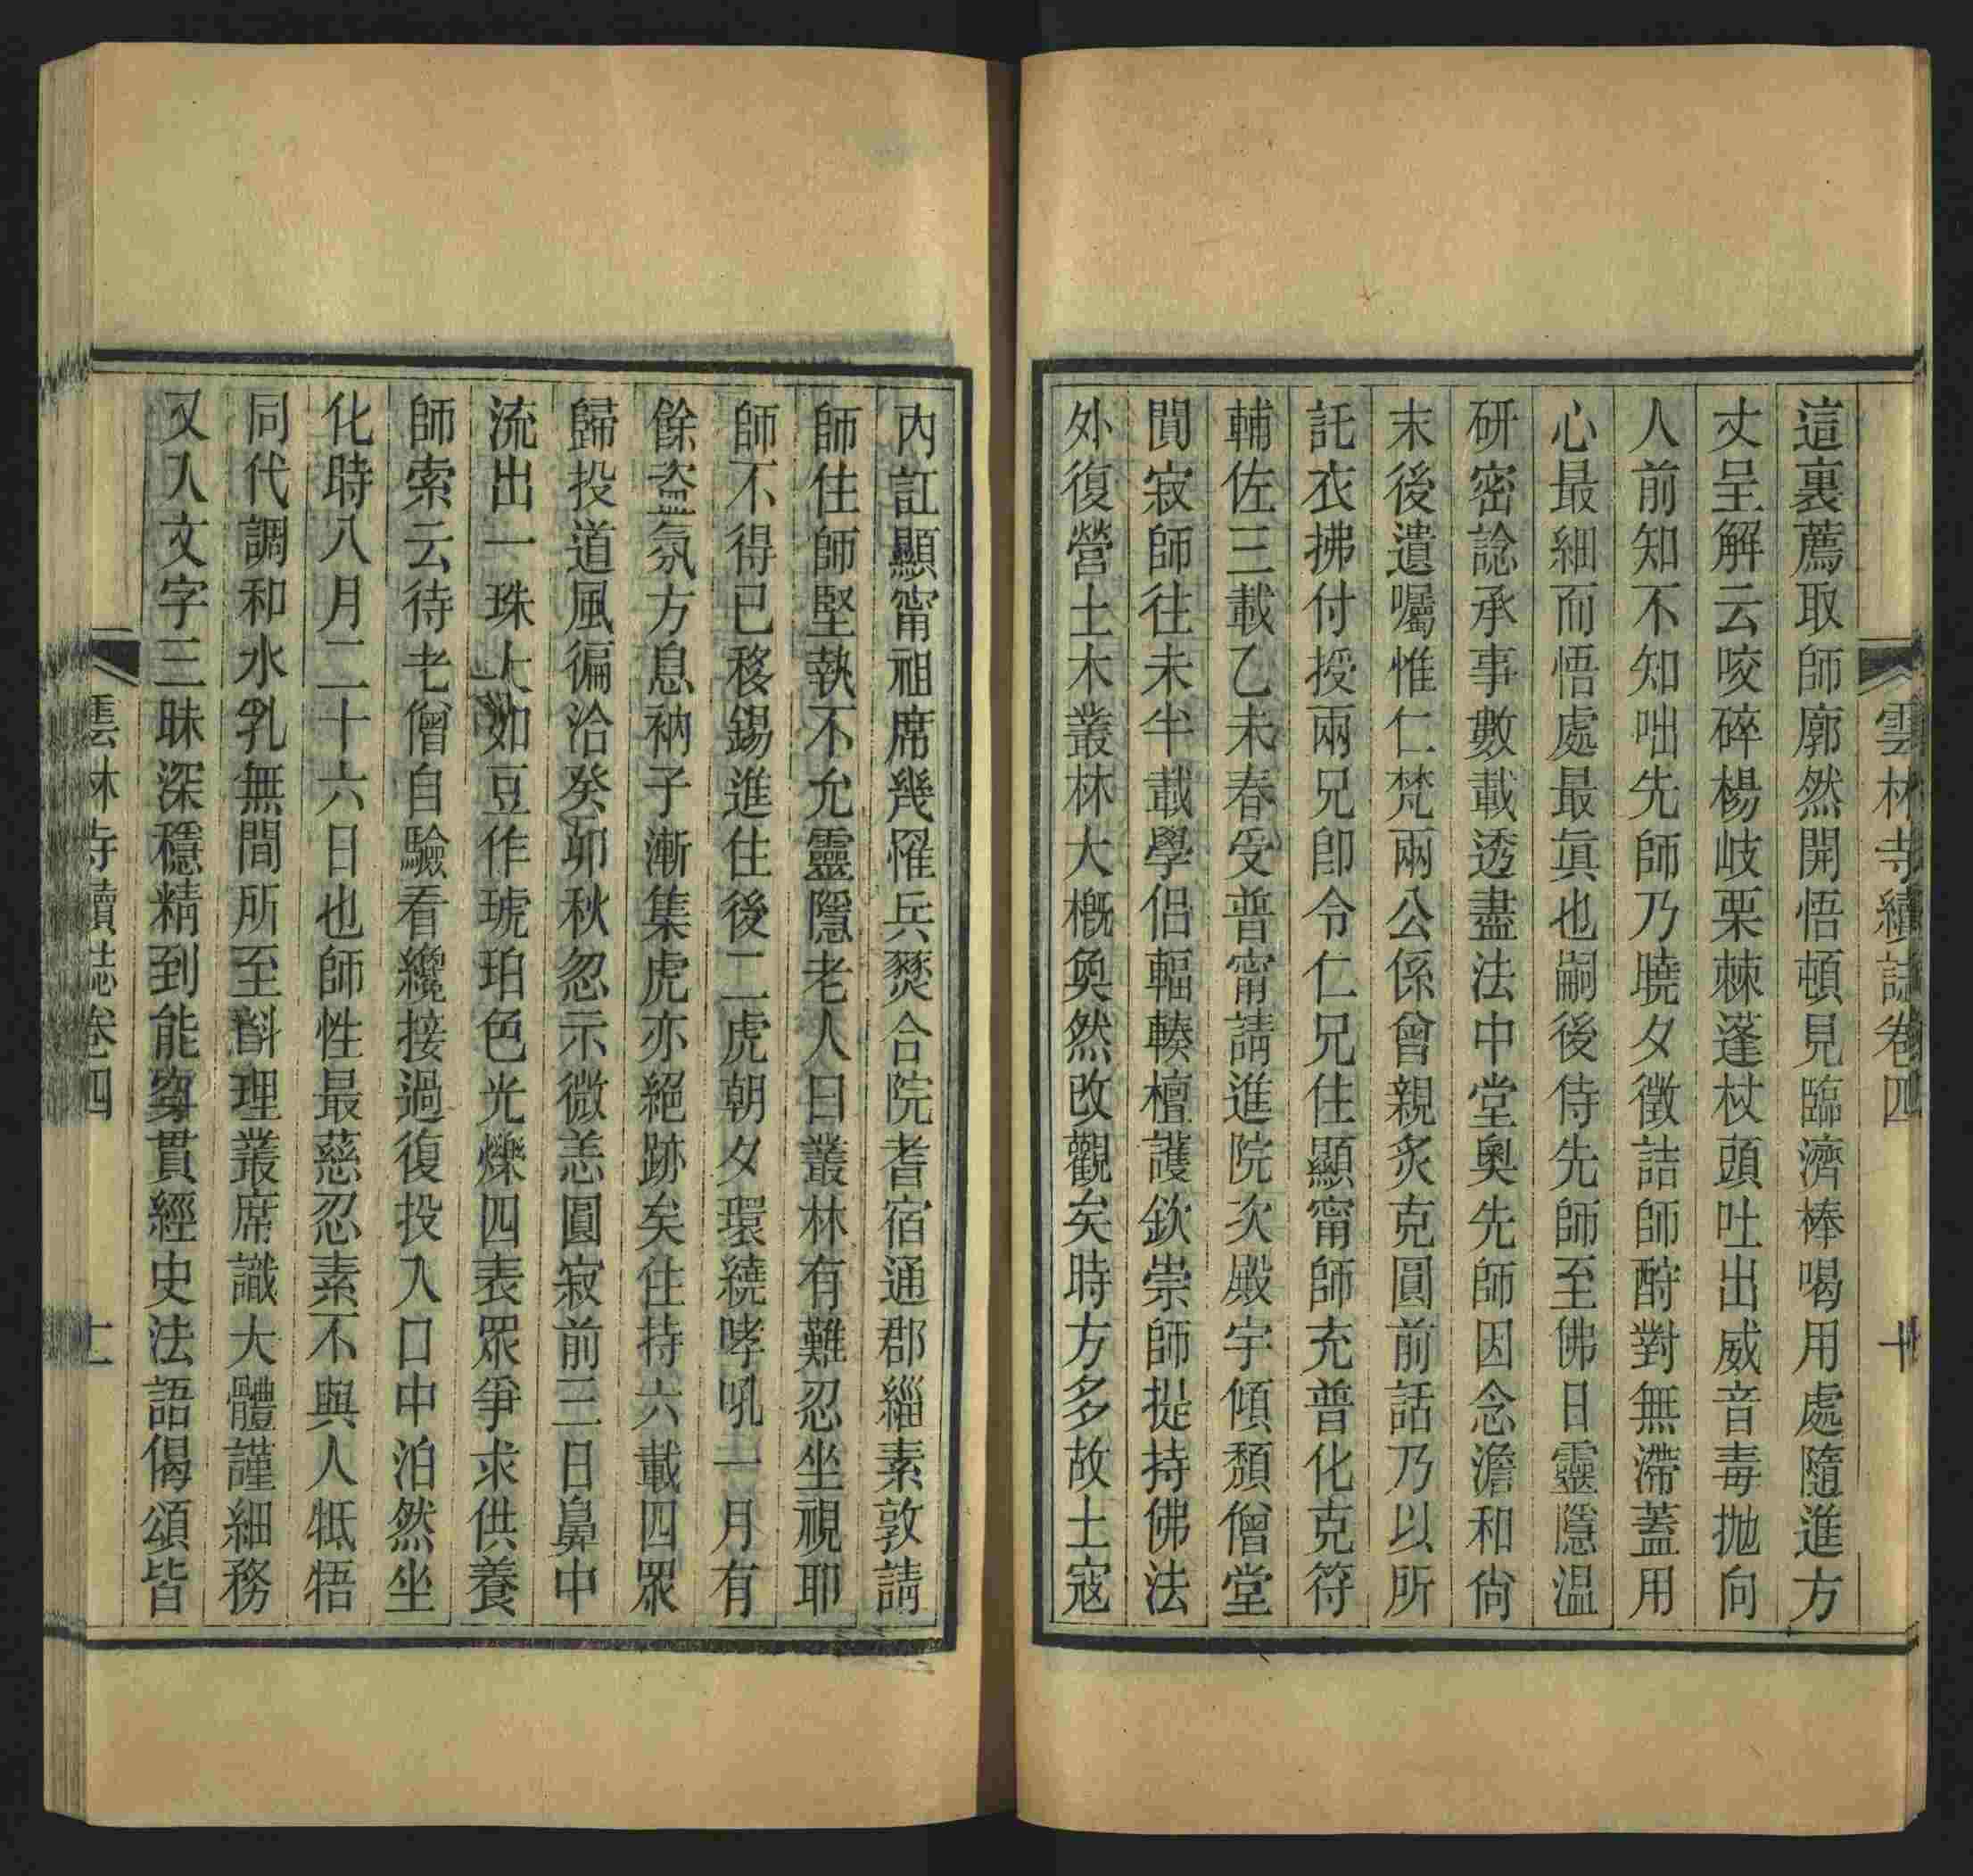 雲林寺續誌卷四
十
這裏薦取師廓然開悟頓見臨濟棒喝用處隨進方
丈呈解云咬碎楊岐栗棘蓬杖頭吐出威音毒拋向
人前知不知咄先師乃曉夕徵詰師酧對無滯蓋用
心最細而悟處最眞也嗣後侍先師至佛日靈隱温
研密諗承事數載透盡法中堂奧先師因念澹和尙
末後遺囑惟仁梵兩公係曾親炙克圓前話乃以所
託衣拂付授兩兄卽令仁兄住顯甯師充普化克符
輔佐三載乙未春受普甯請進院次殿宇傾頽僧堂
閴寂師往未半載學侶輻輳檀護欽崇師提持佛法
外復營土木叢林大槪奐然改觀矣時方多故土寇
內訌顯甯祖席幾罹兵燹合院耆宿通郡緇素敦請
師住師堅執不允靈隱老人曰叢林有難忍坐視耶
師不得已移錫進住後二虎朝夕環繞哮吼一月有
餘盜氛方息衲子漸集虎亦絕跡矣住持六載四眾
歸投道風徧洽癸卯秋忽示微恙圓寂前三日鼻中
流出一珠大如豆作琥珀色光爍四表眾爭求供養
師索云待老僧自驗看纔接過復投入口中泊然坐
化時八月二十六日也師性最慈忍素不與人牴牾
同代調和水乳無間所至斟理叢席識大體謹細務
又入文字三昧深穩精到能穿貫經史法語偈頌皆
雲林寺續誌卷四
十一